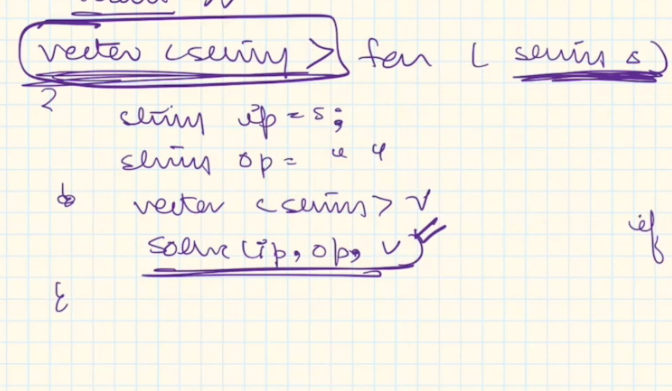 vector <string> fun ( string s )
{
string ip = s;
string op = " "
vector <string> v
solve (ip, op, v)
if
}